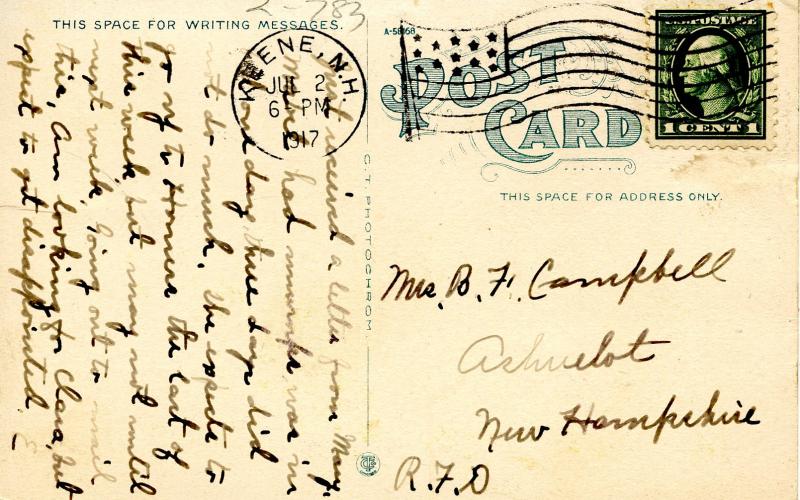 2-783
THIS SPACE FOR WRITING MESSAGES.
KEENE, N.H.
JUL 2
6-PM
1917
A-58168
POST
CARD
U.S. POSTAGE
1 CENT 1
THIS SPACE FOR ADDRESS ONLY.
C.T. PHOTOCHROM
Mrs. B. F. Campbell
Ashuelot
New Hampshire
R.F.D
Just received a letter from May.
had murmps was in
bed days three days did
not do much. She expects to
go up to Homers the last of
this week but may not until
next week, Going out to mail
this, Am looking for Clara, but
expect to get disappointed. E